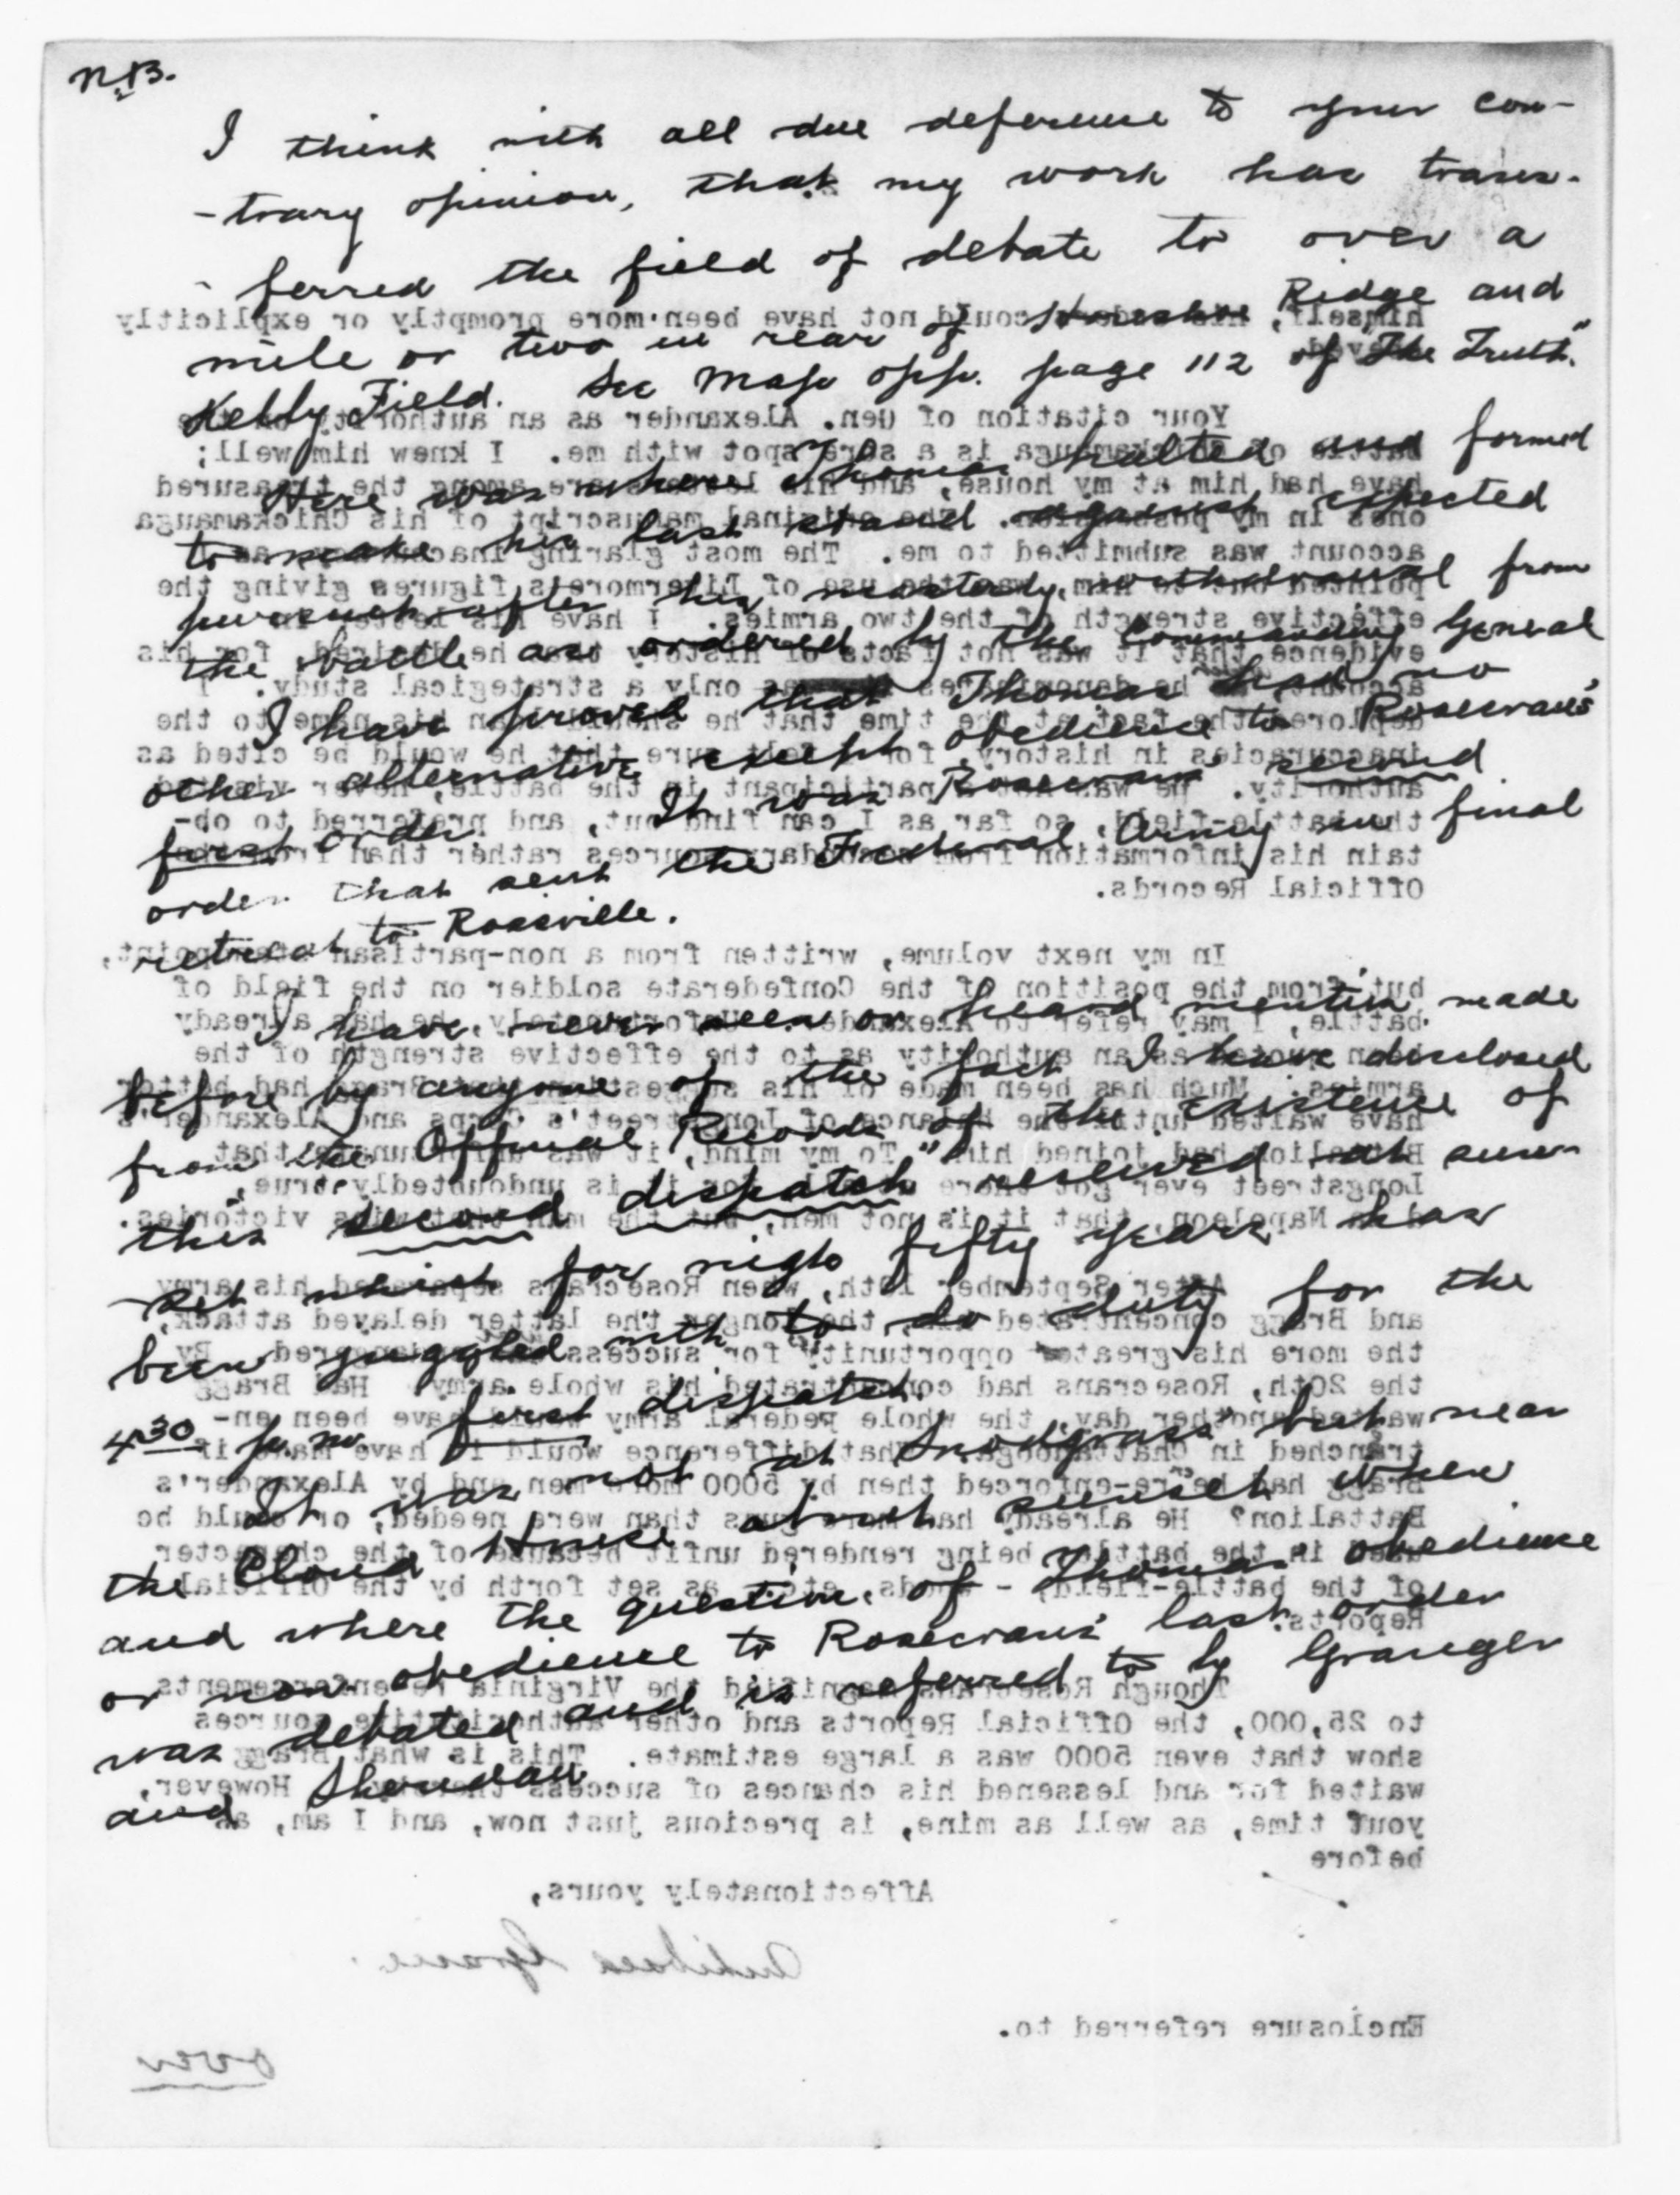 N.B.
I think with all due deference to your con-
-trary opinion, that my work has trans-
-ferred the field of debate to over a
mile or two in rear of Horseshoe Ridge and
Kelly Field. See Map opp. page 112 of "The Truth."
Here was where Thomas halted and formed
to make his last stand against expected
pursuit after his masterly withdrawal from
the battle as ordered by the Commanding General
I have proved that Thomas had no
other alternative except obedience to Rosecrans'
first order. It was Rosecrans' second
order that sent the Federal Army in final
retreat to Rossville.
I have never seen or heard mention made
before by anyone of the fact I have disclosed
from the Official Records of the existence of
this "second dispatch" received at sun-
-set which for nigh fifty years has
been juggled with to do duty for the
4 30 p.m. first dispatch.
It was not at Snodgrass but near
the Cloud House about sunset when
and where the question of Thomas' obedience
or non-obedience to Rosecrans' last order
was debated and is referred to by Granger
and Sheridan
himself, his orders could not have been more promptly or explicitly
Your citation of Gen. Alexander as an authority on the
battle of Chickamauga is a sore spot with me. I knew him well;
have had him at my house, and his letters are among the treasured
ones in my possession. The original manuscript of his Chickamauga
account was submitted to me. The most glaring
pointed out to him, was the use of Livermore's figures giving the
effective strength of the two armies. I have his letter in
evidence that it was not facts of history that he desired, for his
only a strategical study. I
the fact at the time that he should his name to the
inaccuracies in history, for I felt sure that he would be cited as
authority. He was not a participant in the battle, never visited
the battle-field, so far as I can find out, and preferred to ob-
tain his information from secondary sources rather than from the
Official Records.
In my next volume, written from a non-partisan standpoint,
but from the position of the Confederate soldier on the field of
battle, I may refer to Alexander. Unfortunately, he has already
been quoted as an authority as to the effective strength of the
armies. Much has been made of his suggestion that Bragg had better
have waited until the balance of Longstreet's Corps and Alexander's
Battalion had joined him. To my mind, it was unfortunate that
Longstreet ever got there is undoubtedly true,
Napoleon, that it is not men, but the man that wins victories.
After September 18th, when Rosecrans separated his army
and Bragg concentrated his, the longer the latter delayed attack,
the more his greater opportunity for success disappeared. By
the 20th, Rosecrans had concentrated his whole army. Had Bragg
waited another day, the whole Federal army would have been en-
trenched in Chattanooga. What difference would it have made if
Bragg had been re-enforced then by 5000 more men and by Alexander's
Battalion? He already had more guns than were needed, or could be
used in the battle, being rendered unfit because of the character
of the battle-field, - woods, etc., as set forth by the Official
Reports.
Though Rosecrans magnified the Virginia re-enforcements
to 25,000, the Official Reports and other authoritative sources
show that even 5000 was a large estimate. This is what Bragg
waited for and lessened his chances of success thereby. However,
your time, as well as mine, is precious just now, and I am, as
before
Affectionately yours,
Archibald Gracie.
Enclosure referred to.
over